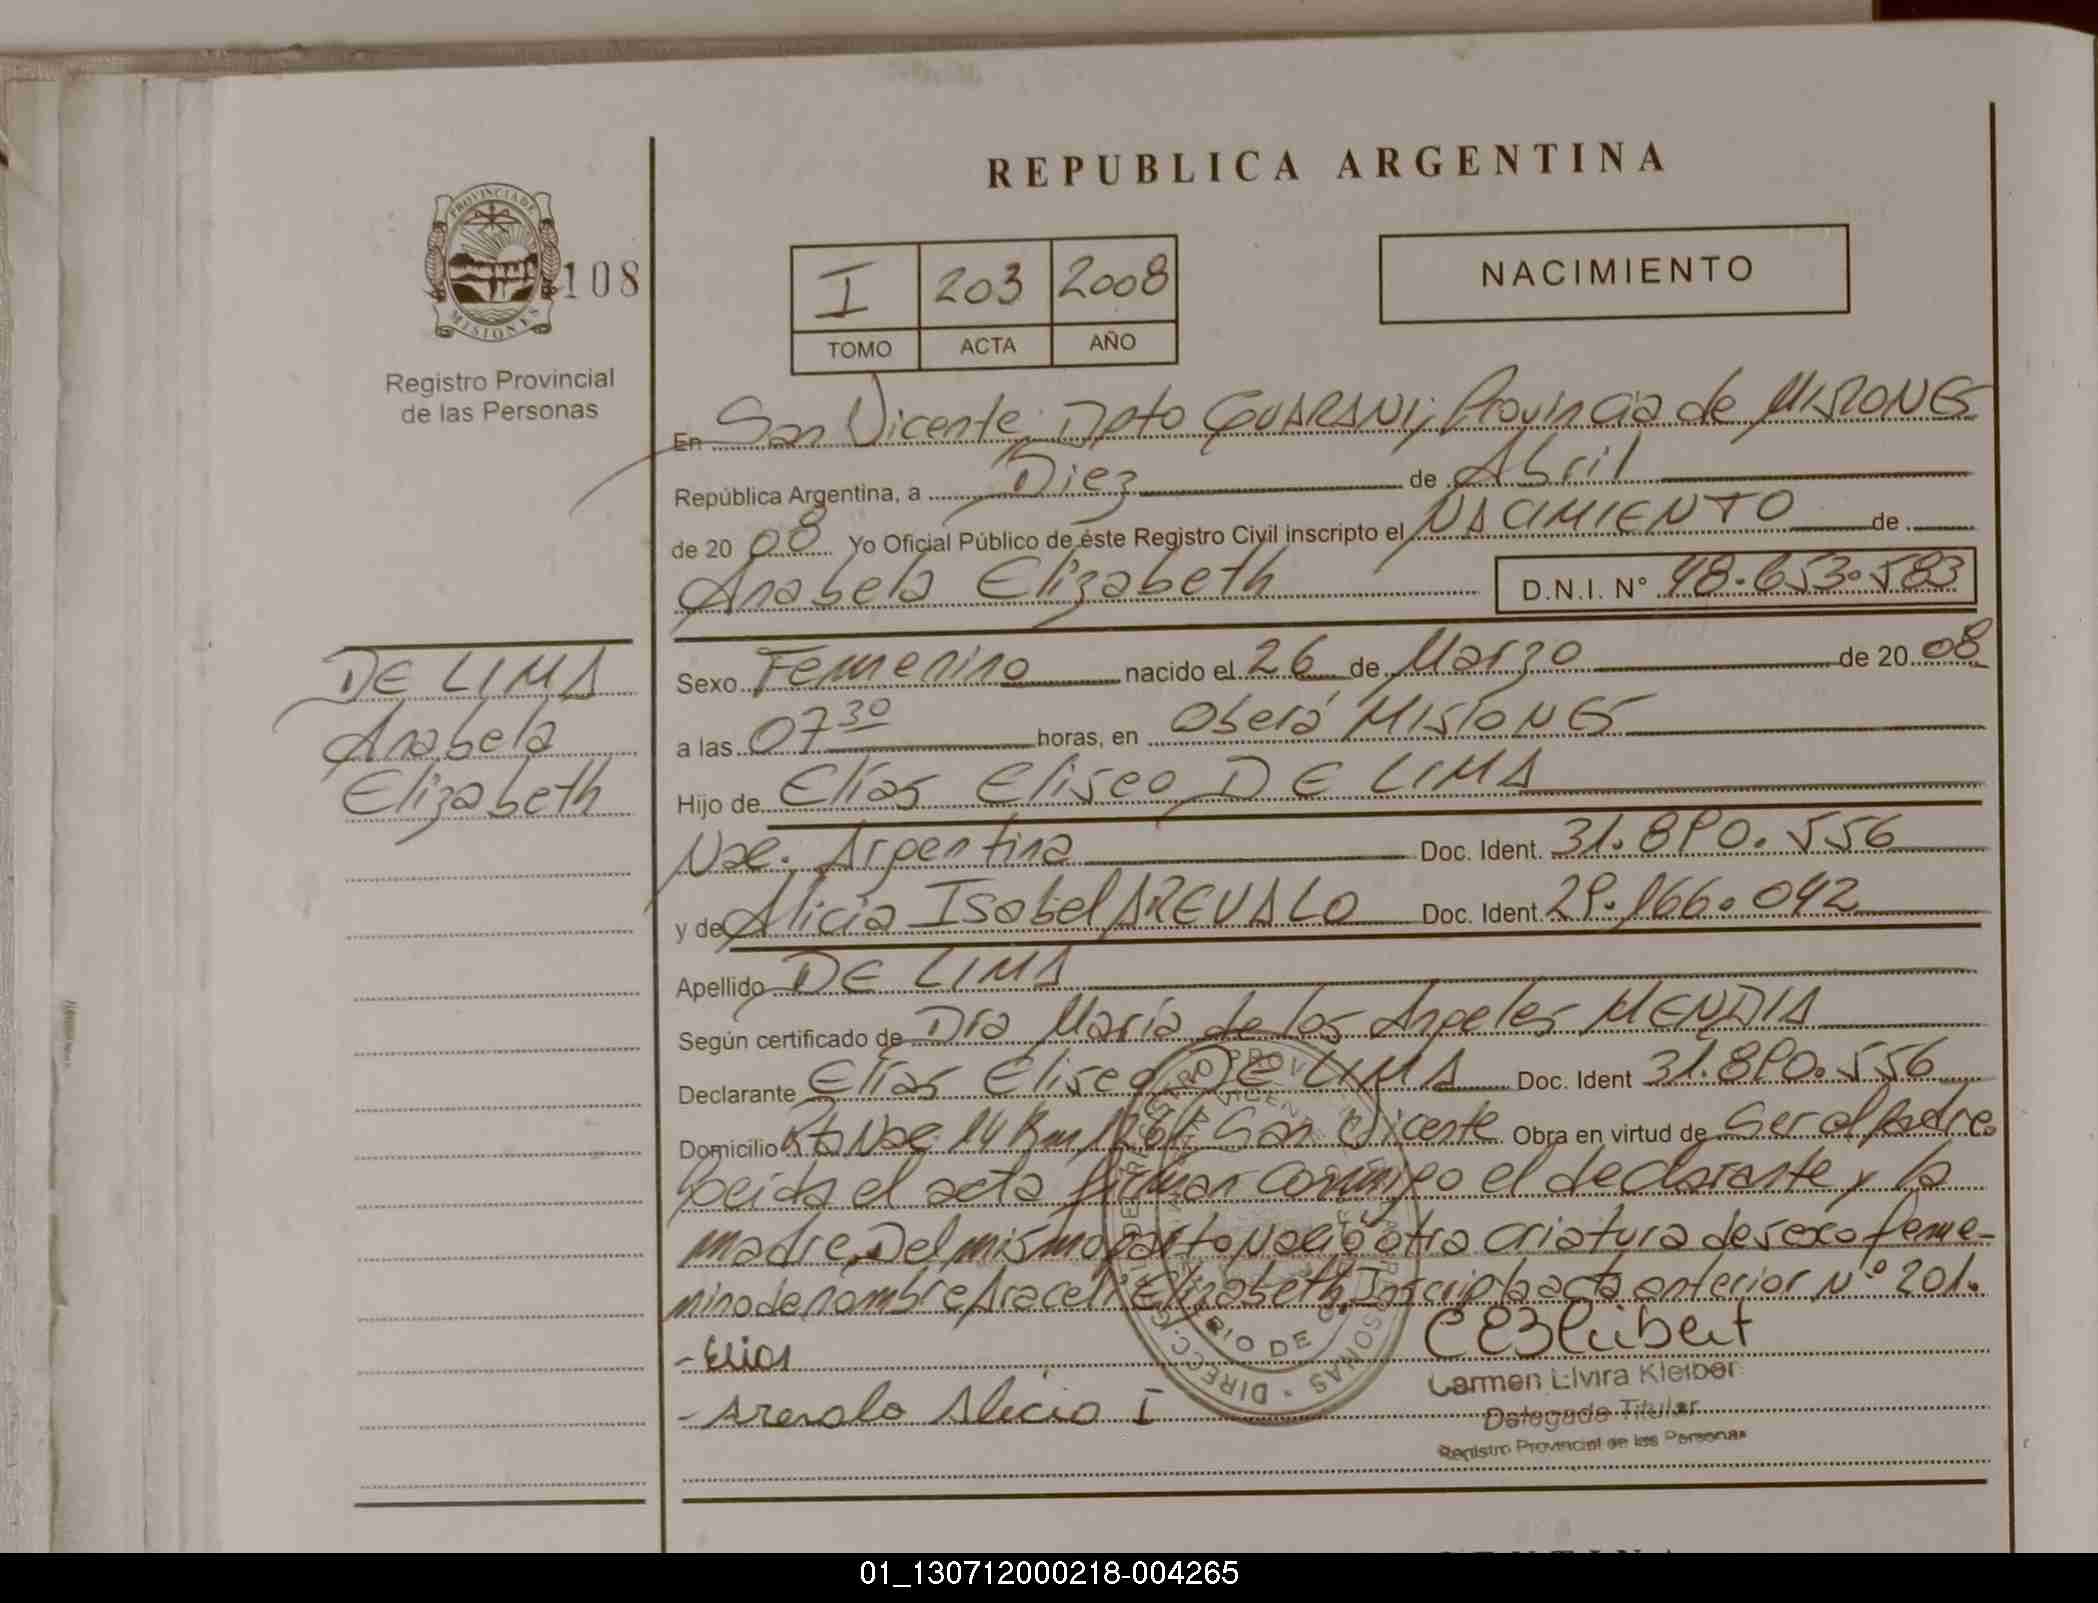 REPUBLICA ARGENTINA
PROVINCIA DE
MISIONES
108
Registro Provincial
de las Personas
I 203 2008
TOMO ACTA AÑO
NACIMIENTO
En San Vicente, Dpto GUARANI, Provincia de MISIONES
República Argentina, a Diez de Abril
de 20 08 Yo Oficial Público de éste Registro Civil inscripto el NACIMIENTO de
Anabela Elizabeth D.N.I. N° 48.653.583
DE LIMA
Anabela
Elizabeth
Sexo Femenino nacido el 26 de Marzo de 20 08
a las 07 30 horas, en Oberá MISIONES
Hijo de Elías Eliseo DE LIMA
Nac. Argentina Doc. Ident. 31.890.556
y de Alicia Isabel AREVALO Doc. Ident. 29.166.042
Apellido DE LIMA
Según certificado de Dra María de los Angeles MENDIA
Declarante Elías Eliseo DE LIMA Doc. Ident 31.890.556
Domicilio Rta Nac. 14 Km San Vicente Obra en virtud de ser el padre
Leida el acta firman conmigo el declarante y la
madre. Del mismo parto Nació otra criatura de sexo feme-
nino de nombre Araceli Elizabeth, Inscripta acta anterior N° 201.
- Elias
- Arevalo Alicia I
Carmen Elvira Kleiber
Delegada Titular
Registro Provincial de las Personas
01_130712000218-004265